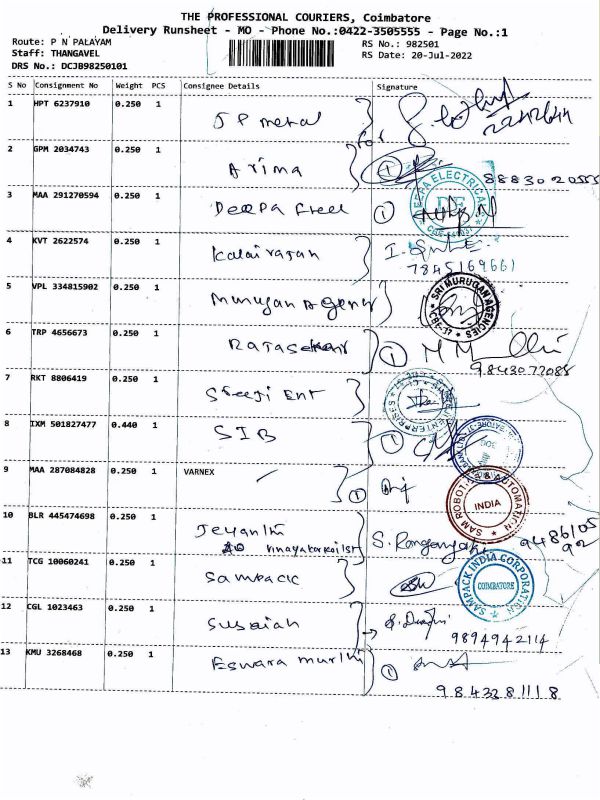 THE PROFESSIONAL COURIERS, Coimbatore
Delivery Runsheet - MO - Phone No.:0422-3505555 - Page No.:1
Route: P N PALAYAM
Staff: THANGAVEL
DRS No.: DCJB98250101
RS No.: 982501
RS Date: 20-Jul-2022
S No Consignment No Weight PCS Consignee Details Signature
1 HPT 6237910 0.250 1 J P metal
for
2 GPM 2034743 0.250 1 Arima 1 8883020555
3 MAA 291270594 0.250 1 Deepa 1
ELECTRICAL
4 KVT 2622574 0.250 1 Kalaivasan
7845169661
5 VPL 334815902 0.250 1 Murugan Agency
SRI MURUGAN AGENCIES
CBE-37
6 TRP 4656673 0.250 1 Rajasekar 1
9843072085
7 RKT 8806419 0.250 1 Sreeji Ent
ENTERPRISES
8 IXM 501827477 0.440 1 SIB 1
9 MAA 287084828 0.250 1 VARNEX 1
SAM ROBOT & AUTOMATION
INDIA
10 BLR 445474698 0.250 1 Jeyanthi S. Ranganayaki 9486105
vinayakar koil st 92
11 TCG 10060241 0.250 1 Sampack
SAMPACK INDIA CORPORATION
COIMBATORE
12 CGL 1023463 0.250 1 Susaiah
9894942114
13 KMU 3268468 0.250 1 Eswara murthi 1
9843281118